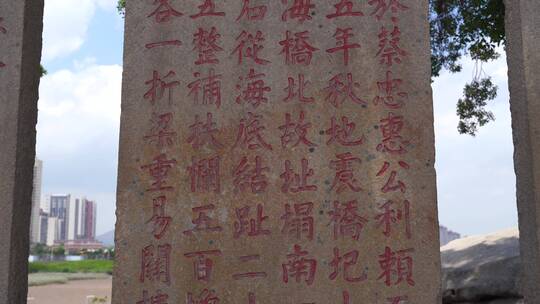 於蔡忠惠公利賴
五年秋地震橋圮
海橋北故址塌南
石從海底結趾二
五整補扶欄五百
容一折梁重易關